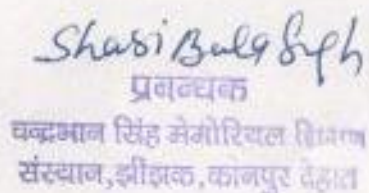 Shasi Bala Singh
प्रबन्धक
चन्द्रभान सिंह मेमोरियल शिक्षण
संस्थान,झींझक,कानपुर देहात